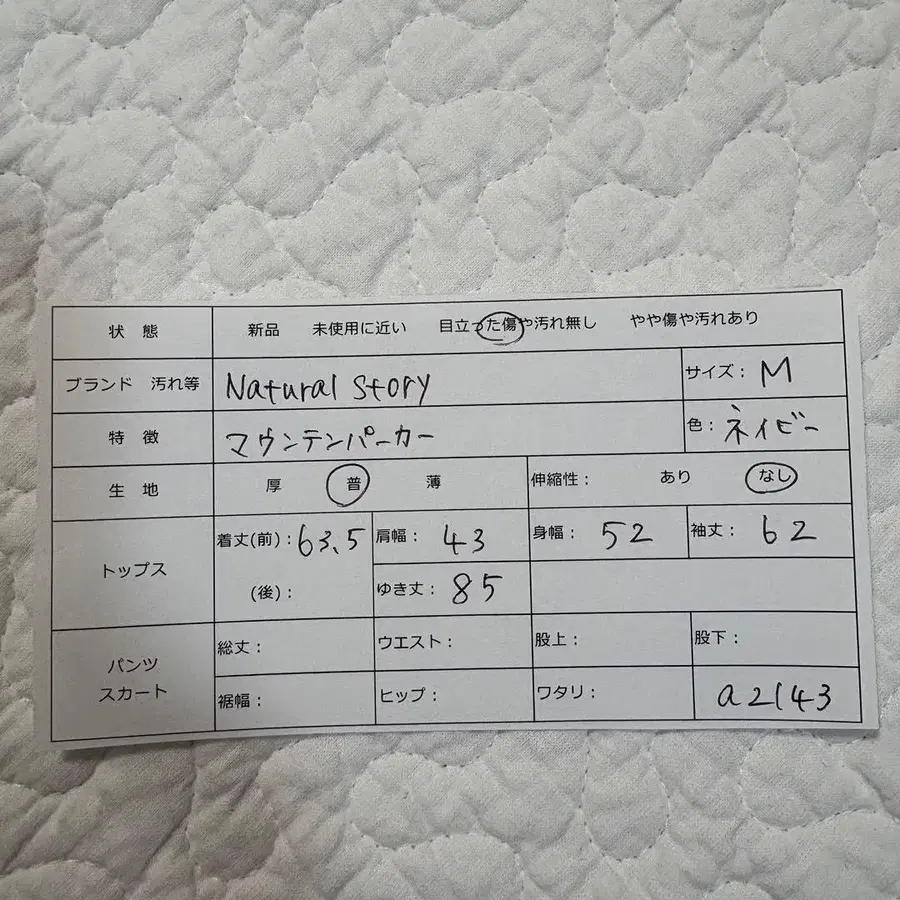 状 態 新品 未使用に近い 目立った傷や汚れ無し やや傷や汚れあり
ブランド 汚れ等 Natural Story サイズ： M
特 徴 マウンテンパーカー 色： ネイビー
生 地 厚 普 薄 伸縮性： あり なし
トップス 着丈(前)：63.5 肩幅： 43 身幅： 52 袖丈： 62
(後)： ゆき丈： 85
パンツ スカート 総丈： ウエスト： 股上： 股下：
裾幅： ヒップ： ワタリ： a2143